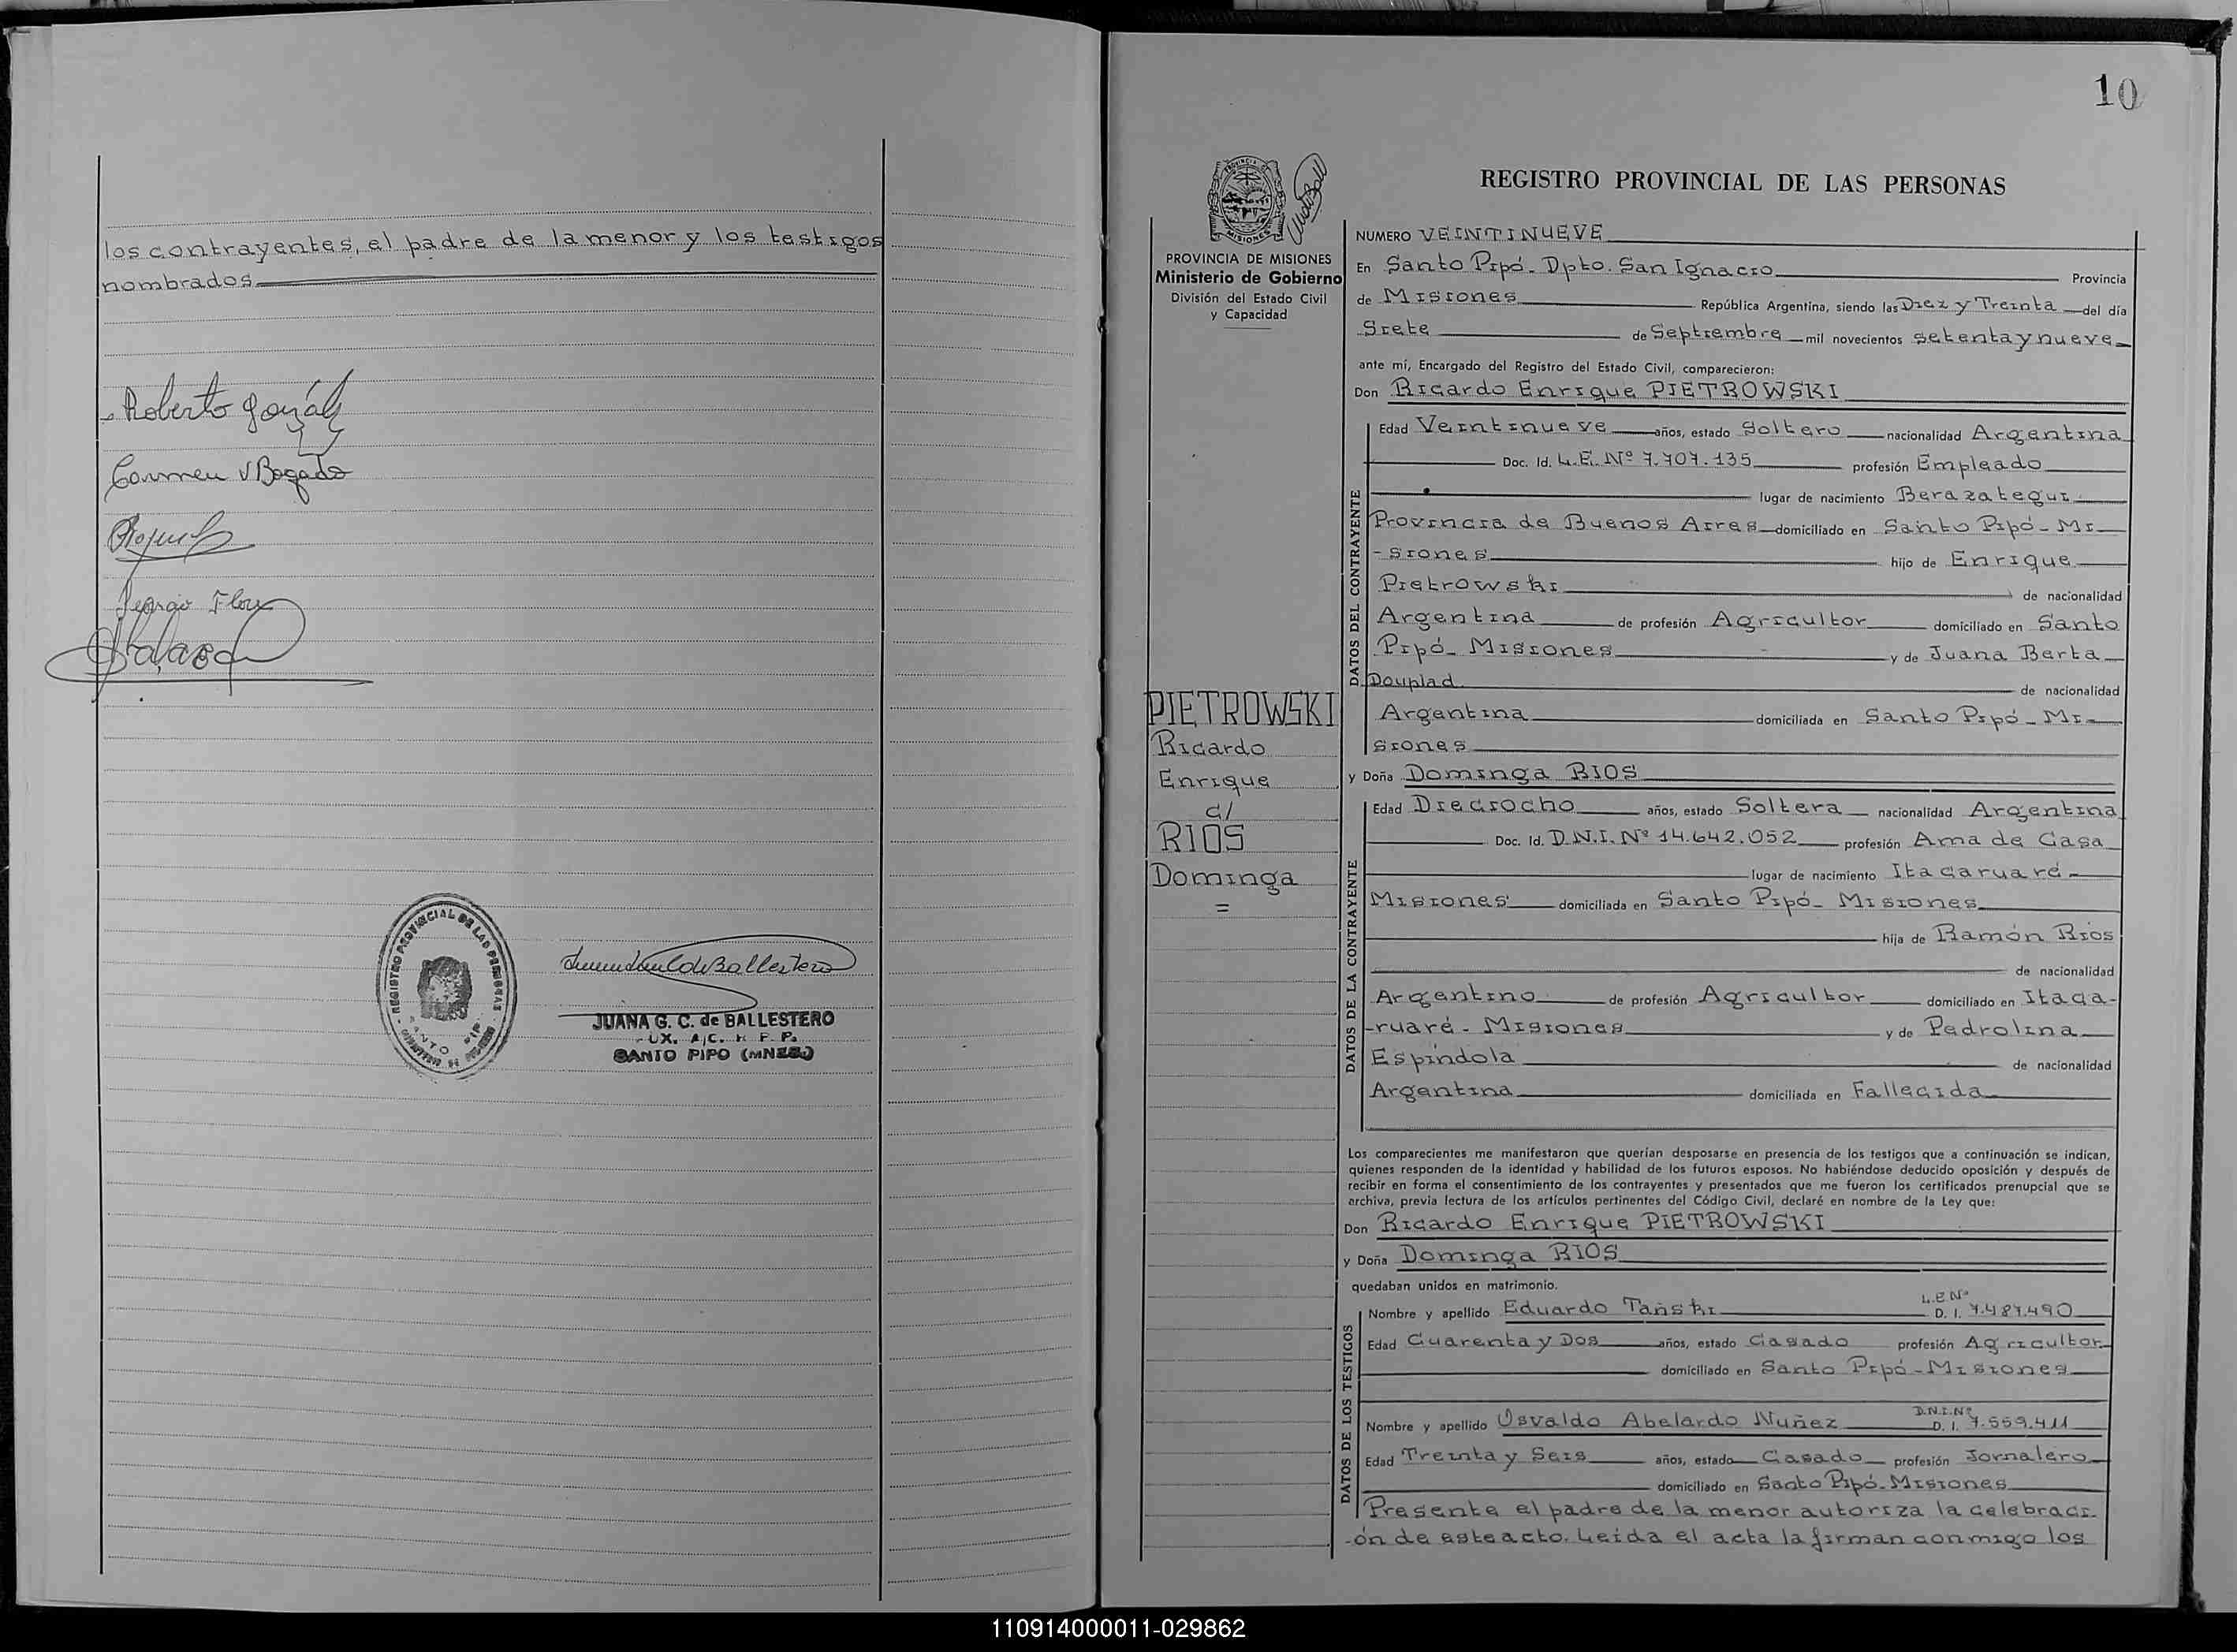 los contrayentes, el padre de la menor y los testigos
nombrados
Roberto Gonzál
Carmen V Bogado
Sergio Flor
REGISTRO PROVINCIAL DE LAS PERSONAS
JUANA G. C. de BALLESTERO
SANTO PIPO (MNES.)
10
PROVINCIA DE MISIONES
Ministerio de Gobierno
División del Estado Civil
y Capacidad
PIETROWSKI
Ricardo
Enrique
c/
RIOS
Dominga
=
REGISTRO PROVINCIAL DE LAS PERSONAS
NUMERO VEINTINUEVE
En Santo Pipó - Dpto. San Ignacio Provincia
de Misiones República Argentina, siendo las Diez y Treinta del día
Siete de Septiembre mil novecientos setenta y nueve
ante mí, Encargado del Registro del Estado Civil, comparecieron:
Don Ricardo Enrique PIETROWSKI
DATOS DEL CONTRAYENTE
Edad Veintinueve años, estado Soltero nacionalidad Argentina
Doc. Id. L.E. Nº 7.707.135 profesión Empleado
lugar de nacimiento Berazategui
Provincia de Buenos Aires domiciliado en Santo Pipó - Mi-
-siones hijo de Enrique
Pietrowski de nacionalidad
Argentina de profesión Agricultor domiciliado en Santo
Pipó - Misiones y de Juana Berta
Douplad de nacionalidad
Argentina domiciliada en Santo Pipó - Mi-
siones
y Doña Dominga RIOS
DATOS DE LA CONTRAYENTE
Edad Dieciocho años, estado Soltera nacionalidad Argentina
Doc. Id. D.N.I. Nº 14.642.052 profesión Ama de Casa
lugar de nacimiento Itacaruaré -
Misiones domiciliada en Santo Pipó - Misiones
hija de Ramón Rios
de nacionalidad
Argentino de profesión Agricultor domiciliado en Itaca-
-ruaré - Misiones y de Pedrolina
Espíndola de nacionalidad
Argentina domiciliada en Fallecida
Los comparecientes me manifestaron que querían desposarse en presencia de los testigos que a continuación se indican,
quienes responden de la identidad y habilidad de los futuros esposos. No habiéndose deducido oposición y después de
recibir en forma el consentimiento de los contrayentes y presentados que me fueron los certificados prenupcial que se
archiva, previa lectura de los artículos pertinentes del Código Civil, declaré en nombre de la Ley que:
Don Ricardo Enrique PIETROWSKI
y Doña Dominga RIOS
quedaban unidos en matrimonio.
DATOS DE LOS TESTIGOS
Nombre y apellido Eduardo Tański L.E Nº D. I. 7.487.490
Edad Cuarenta y Dos años, estado Casado profesión Agricultor
domiciliado en Santo Pipó - Misiones
Nombre y apellido Osvaldo Abelardo Nuñez D.N.I. Nº D. I. 7.559.411
Edad Treinta y Seis años, estado Casado profesión Jornalero
domiciliado en Santo Pipó - Misiones
Presente el padre de la menor autoriza la celebraci-
-ón de este acto. Leída el acta la firman conmigo los
110914000011-029862